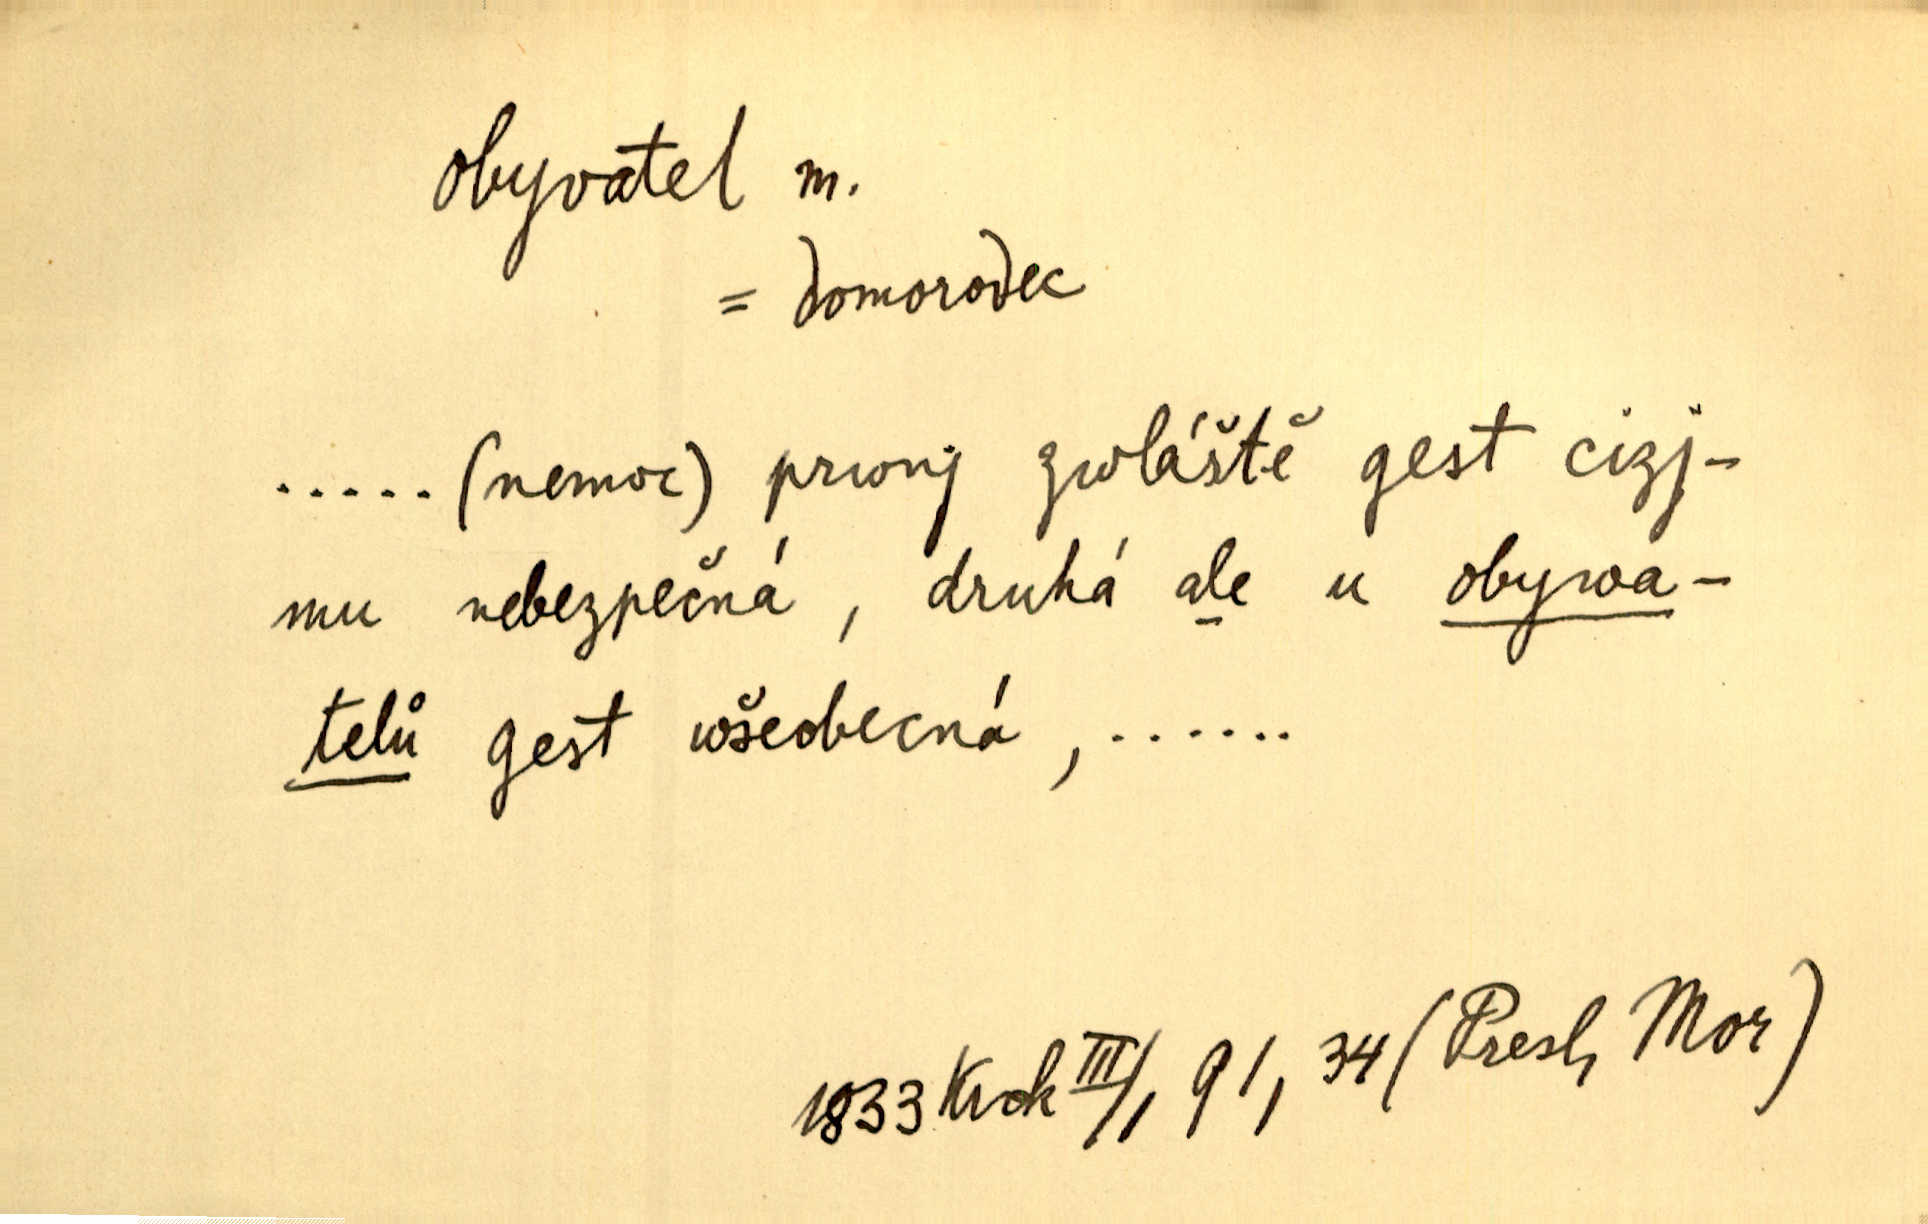 obyvatel m.
= domorodec
.....(nemoc) prwnj zwláště gest cizj-
mu nebezpečná, druhá ale u obywa-
telů gest wšeobecná,.......
1833 Krok III/1, 91, 34 (Presl, Mor)